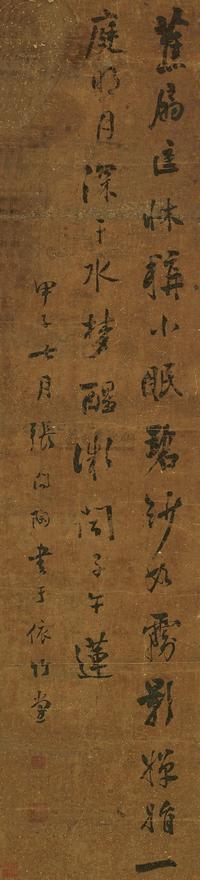 蕉扇匡牀稱小眠碧紗如霧影嬋娟一
庭明月深于水夢醒微聞子午蓮
甲子七月張問陶書于依竹堂